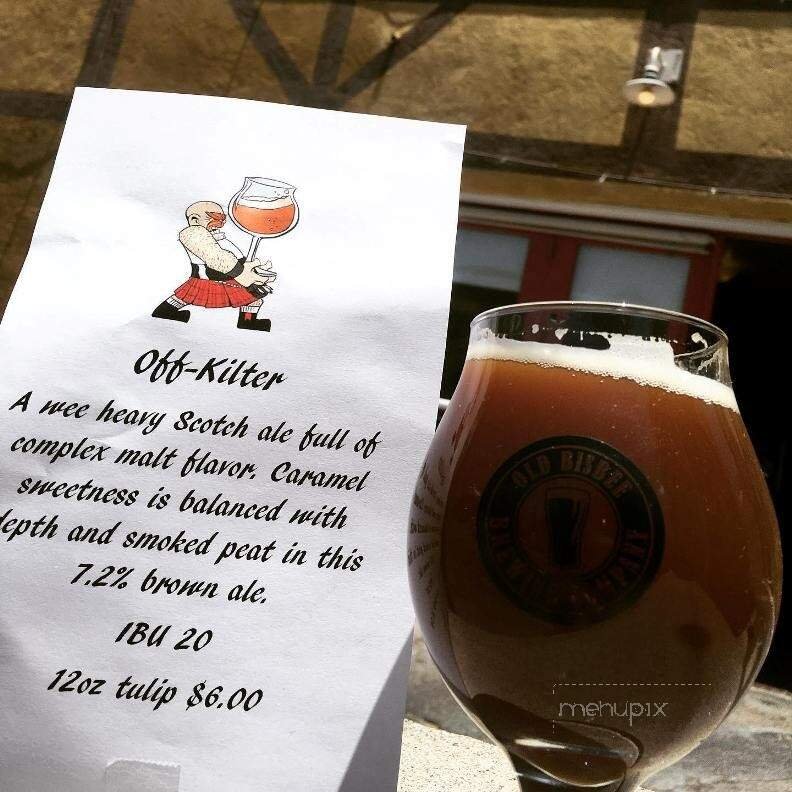 Off-Kilter
A wee heavy Scotch ale full of
complex malt flavor. Caramel
sweetness is balanced with
depth and smoked peat in this
7.2% brown ale.
IBU 20
12oz tulip $6.00
OLD BISBEE
BREWING COMPANY
menupix